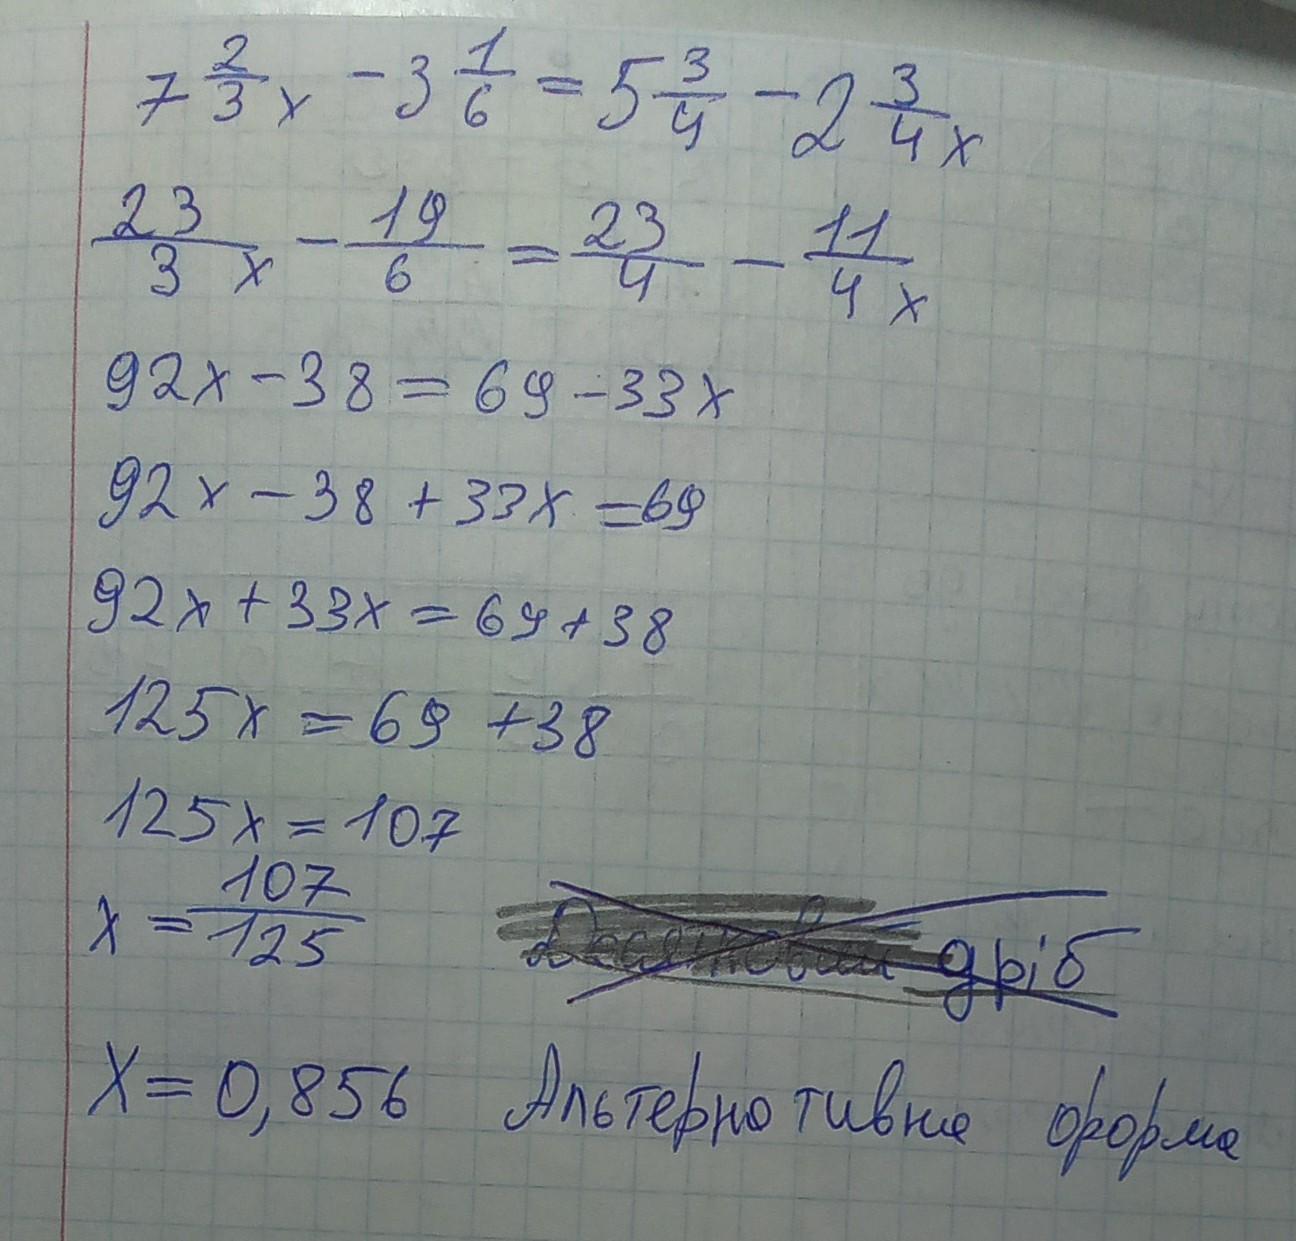 7 2/3 x - 3 1/6 = 5 3/4 - 2 3/4 x
23/3 x - 19/6 = 23/4 - 11/4 x
92x - 38 = 69 - 33x
92x - 38 + 33x = 69
92x + 33x = 69 + 38
125x = 69 + 38
125x = 107
x = 107/125
Десятковий дріб
X = 0,856 Альтернативна форма